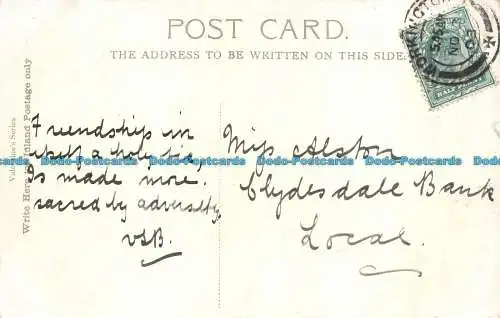 POST CARD.
THE ADDRESS TO BE WRITTEN ON THIS SIDE.
WORKINGTON
HALF PENNY
Valentine's Series
Write Here for Inland Postage only
Friendship in
itself a holy tie,
Is made more
sacred by adversity.
VSB.
Miss Alston
Clydesdale Bank
Local.
Dodo Postcards Dodo Postcards Dodo Postcards Dodo Postcards Dodo Postcards